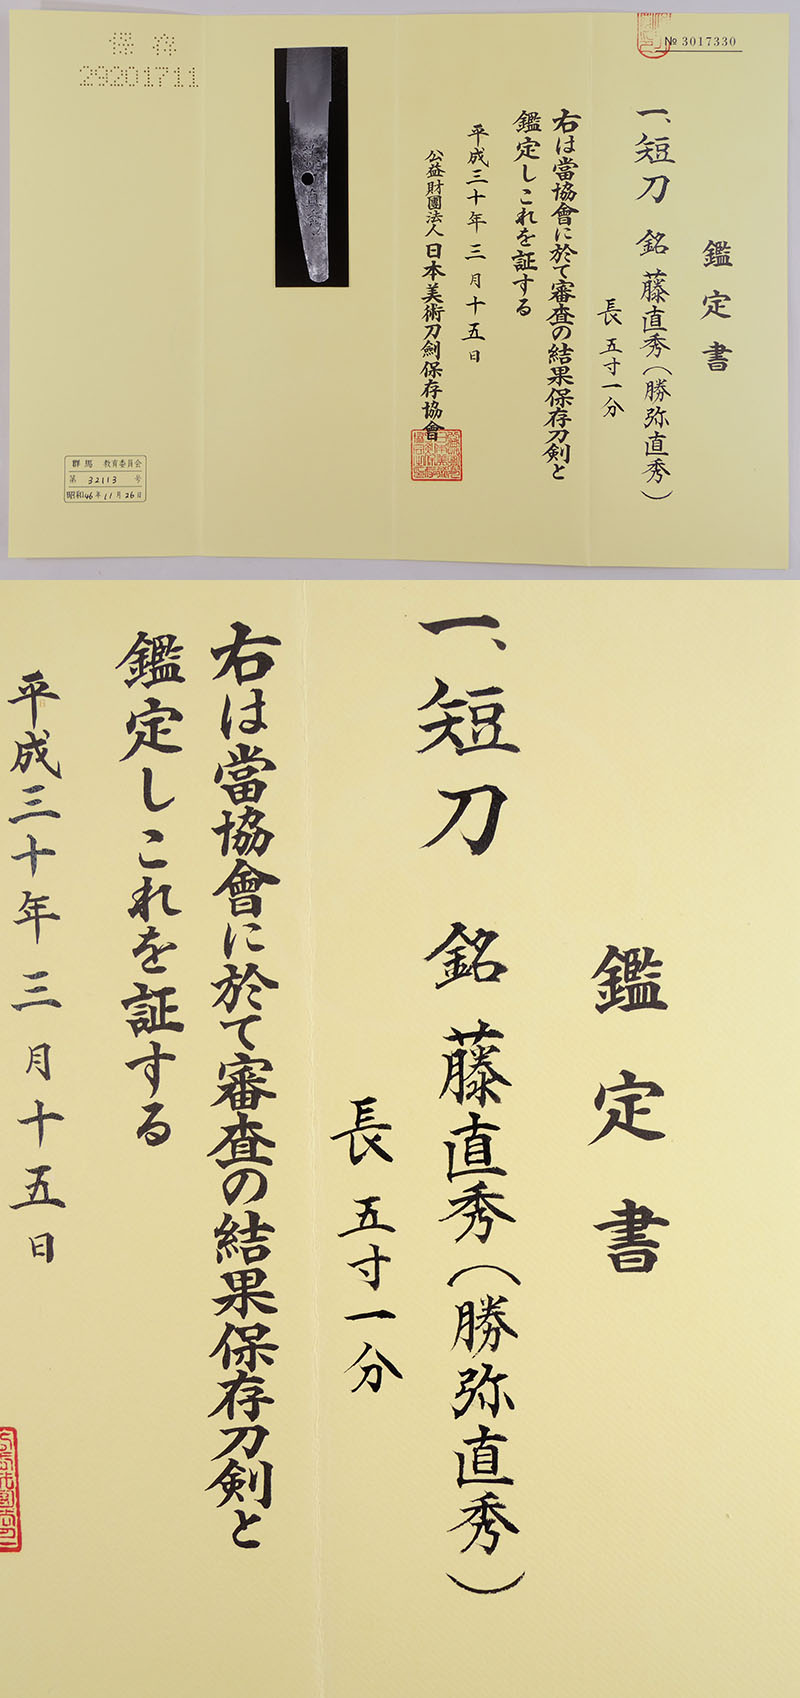 № 3017330
鑑定書
一、短刀 銘 藤直秀（勝弥直秀）
長 五寸一分
右は當協會に於て審査の結果保存刀剣と
鑑定しこれを証する
平成三十年 三 月 十 五 日
公益財團法人 日本美術刀劍保存協會
保存
29201711
群馬 教育委員会
第 32113 号
昭和46年11月26日
鑑定書
一、短刀 銘 藤直秀（勝弥直秀）
長 五寸一分
右は當協會に於て審査の結果保存刀剣と
鑑定しこれを証する
平成三十年 三 月 十 五 日